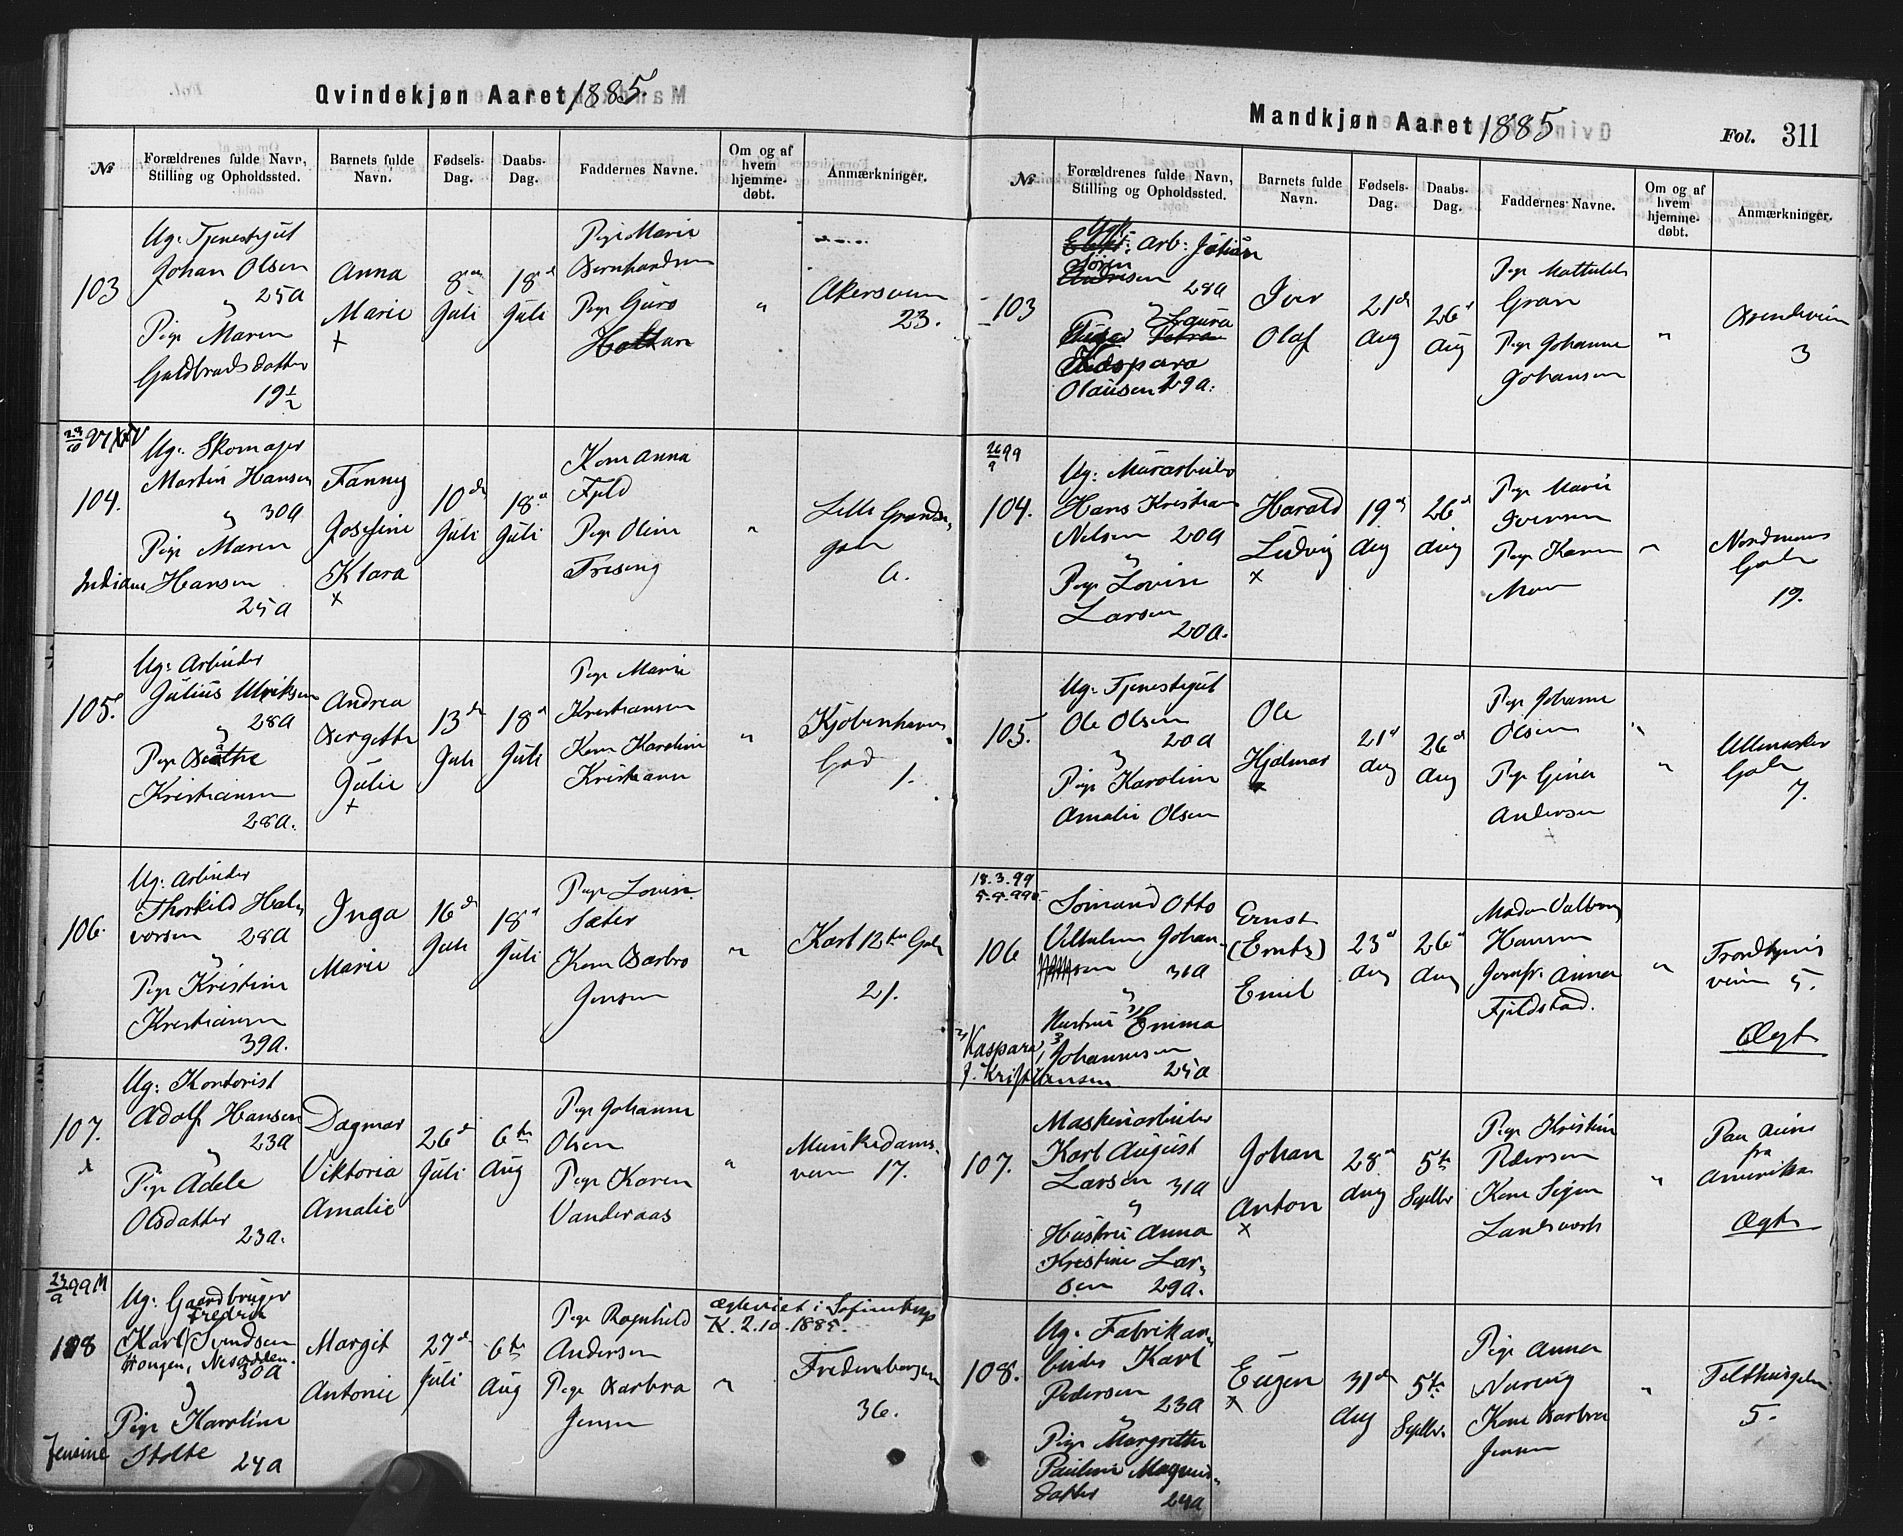 Qvindekjøn Aaret 1885.
№
Forældrenes fulde Navn, Stilling og Opholdssted.
Barnets fulde Navn.
Fødsels-Dag.
Daabs-Dag.
Faddernes Navne.
Om og af hvem hjemme-døbt.
Anmærkninger.
103
Ug: Tjenestegut
Johan Olsen
25 a
Pige Maren
Guldbrandsdatter
19½
Anna
Marie
+
8de
Juli
18d
Juli
Pige Marie
Bernhardsen
Pige Guro
"
Akersveien
23.
104.
Ug: Skomager
Martin Hansen
30 a
Pige Maren
Indiane Hansen
25 a
Fanny
Josefine
Klara
x
10de
Juli
18d
Juli
Kone Anna
Fjeld
Pige Oline
"
Lille Grændse,
gade
6.
105.
Ug: Arbeider
Julius Ulriksen
28 a
Pige
Kristiansen
28 a.
Andrea
Bergette
Julie
+
13de
Juli
18d
Juli
Pige Marie
Kristiansen
Kone Karoline
"
Kjøbenhavns
Gad
1.
106.
Ug: Arbeider
Thorkild Hal,
vorsen 28 a
Pige Kristine
Kristiansen
39 a.
Inga
Marie
16de
Juli
18d
Juli
Pige Lovise
Sæter
Kone Barbro
Jensen
"
Karl 12tes Gade
21.
107.
Ug: Kontorist
Adolf Hansen
23 a
Pige Adele
Olsdatter
23 a.
Dagmar
Viktoria
Amalie
26de
Juli
6te
Aug
Pige Johanne
Olsen
Pige Karen
Vanderaas
"
Munkedams,
veien 17.
23/9 99 M
108
Ug: Gaardbruger
Fredrik
Karl Svendsen
Hongen, Nesodden.
30 a
Pige Karoline
Jensine Stolte 24 a
Margit
Antonie
27de
Juli
6te
Aug
Pige Ragnhild
Andersen
Pige Barbra
Jensen
"
ægteviet i Sofienbergs
K. 2.10.1885.
Fredensborgvn
36.
Mandkjøn Aaret 1885
Fol. 311
№
Forældrenes fulde Navn, Stilling og Opholdssted.
Barnets fulde Navn.
Fødsels-Dag.
Daabs-Dag.
Faddernes Navne.
Om og af hvem hjemme-døbt.
Anmærkninger.
103
Ugft.
Arb: Johan
Sørensen 28 a
Laura
Kaspara
Olausen 29 a.
Iver
Olaf
21de
Aug
26d
Aug
Pige Mathilde
Gran
Pige Johanne
Johansen
"
3
26/9 99
104.
Ug: Murarbeider
Hans Kristian
Nilsen 20 a
Pige Lovise
Larsen
20 a.
Harald
Ludvig
x
19de
Aug
26d
Aug
Pige Marie
Iversen
Pige Karen
Moen
"
Nordmans
Gade
19.
105.
Ug: Tjenestegut
Ole Olsen
20 a
Pige Karoline
Amalie Olsen
Ole
Hjalmar
21d
Aug
26d
Aug
Pige Johanne
Olsen
Pige Gina
Andersen
"
Ullensaker
Gade
7.
18.3.99
106
Sømand Otto
Vilhelm Johan,
sen 31 a
Hustru Emma
Kaspara, Johannesen
f. Kristiansen 25 a
Ernst
(Ernts)
Emil
23d
Aug
26d
Aug
Madam Valborg
Hansen
Jomfr: Anna
Fjeldstad.
"
Trondhjems
veien 5.
Ægte
107.
Maskinarbeider
Karl August
Larsen 31 a
Hustru Anna
Kristine Lar,
sen 29 a.
Johan
Anton
x
28de
Aug
5te
Septbr
Pige Kristine
Pedersen
Kone Signe
"
fra
Amerika
Ægte
108.
Ug: Fabrikar,
beider Karl
Pedersen
23 a
Pige Margrethe
Pauline Magnus,
datter 24 a
Eugen
x
31de
Aug
5te
Septbr.
Pige Anna
Narvig
Kone Barbra
Jensen
"
Telthusgaden
5.